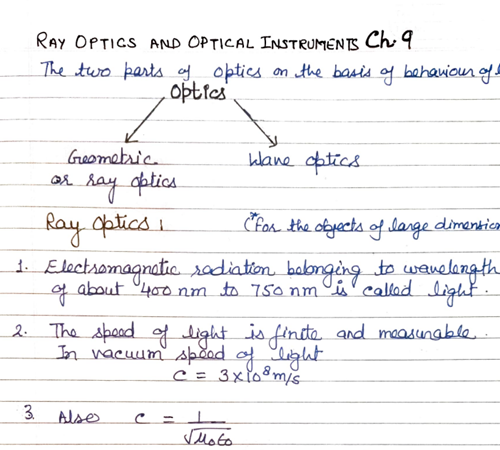 RAY OPTICS AND OPTICAL INSTRUMENTS Ch 9
The two parts of optics on the basis of behaviour of
Optics
Geometric Wave optics
or ray optics
Ray Optics : (*For the objects of large dimension
1. Electromagnetic radiation belonging to wavelength
of about 400 nm to 750 nm is called light.
2. The speed of light is finite and measurable.
In vacuum speed of light
c = 3×10⁸ m/s
3. Also c = 1/√μ₀ε₀